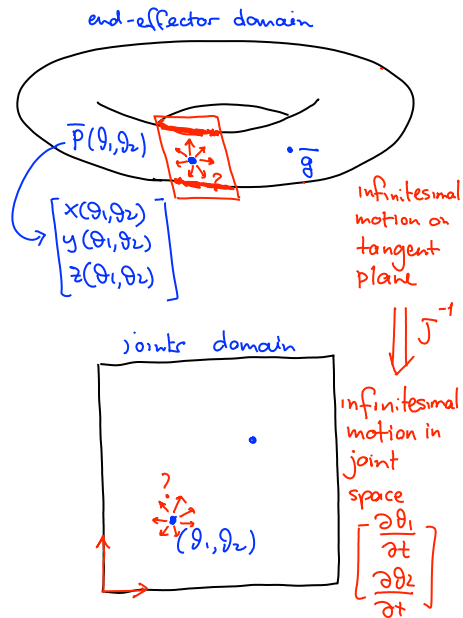 end-effector domain
p̅(ϑ₁,ϑ₂)
g̅
?
[x(ϑ₁,ϑ₂)
y(ϑ₁,ϑ₂)
z(ϑ₁,ϑ₂)]
infinitesimal
motion on
tangent
plane
J⁻¹
joints domain
?
(ϑ₁,ϑ₂)
infinitesimal
motion in
joint
space
[∂θ₁
∂t
∂ϑ₂
∂t]